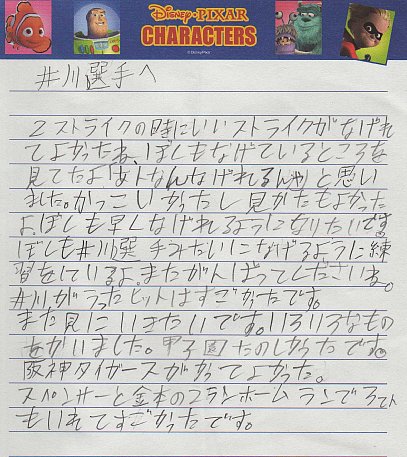 Disney·PIXAR
CHARACTERS
© Disney/Pixar
井川選手へ
2ストライクの時にいいストライクがなげれ
てよかったね、ぼくもなげているところを
見てたよ「あんなんなげれるんや」と思い
ました。かっこいかったし見かたもよかった
よ、ぼくも早くなげれるようになりたいです。
ぼくも井川選手みたいになげるように練
習をしているよ。またがんばってくださいね。
井川がうったヒットはすごかったです。
また見にいきたいです。いろいろなもの
をかいました。甲子園たのしかったです。
阪神タイガースがかってよかった。
スペンサーと金本の2ランホームランで3てん
もいれてすごかったです。